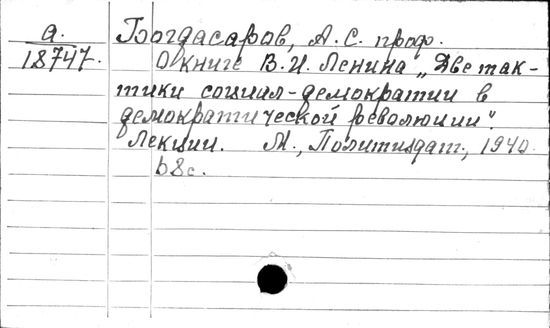 а.
18747.
Богдасаров, А. С. проф.
О книге В. И. Ленина „Две так-
тики социал-демократии в
демократической революции".
Лекции. М., Политиздат, 1940.
68 с.